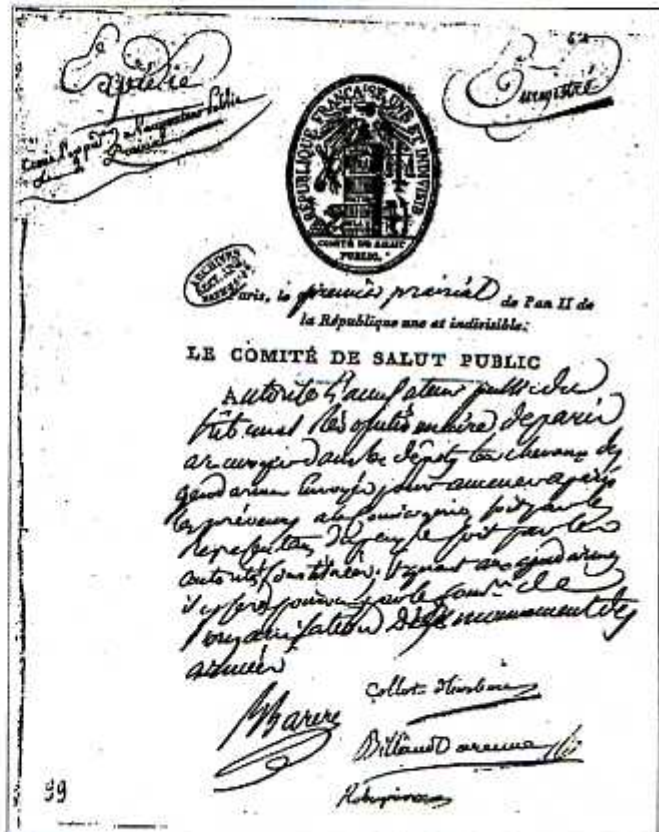 Expédié
Enregistré
RÉPUBLIQUE FRANÇAISE UNE ET INDIVISIB
COMITÉ DE SALUT
PUBLIC.
ARCHIVES
NATIONALES
Paris, le premier prairial de l'an II de
la République une et indivisible:
LE COMITÉ DE SALUT PUBLIC
Autorise l'accusateur public du
tribunal Révolutionnaire de paris
a envoyer dans les dépôts les chevaux des
gendarmes Envoyés pour amener a paris
les prévenus a la Conciergerie soit par les
Representans du peuple soit par les
autorités Constituées; et quant aux gendarmes
il y sera pourvu par le
l'organisation des armées
Barere
Collot d'herbois
Billaud Varenne
Robespierre
99